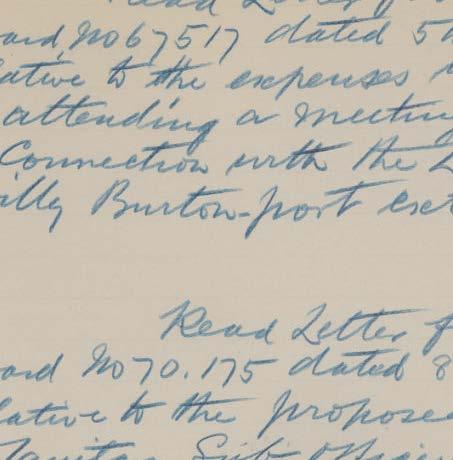 Read Letter f
ard, No 67517 dated 5
lative to the expenses
attending a meeting
Connection with the L
illy Burton-port ext
Read Letter f
oard No 70.175 dated 8
lative to the propose
Sanitary Sub Officer